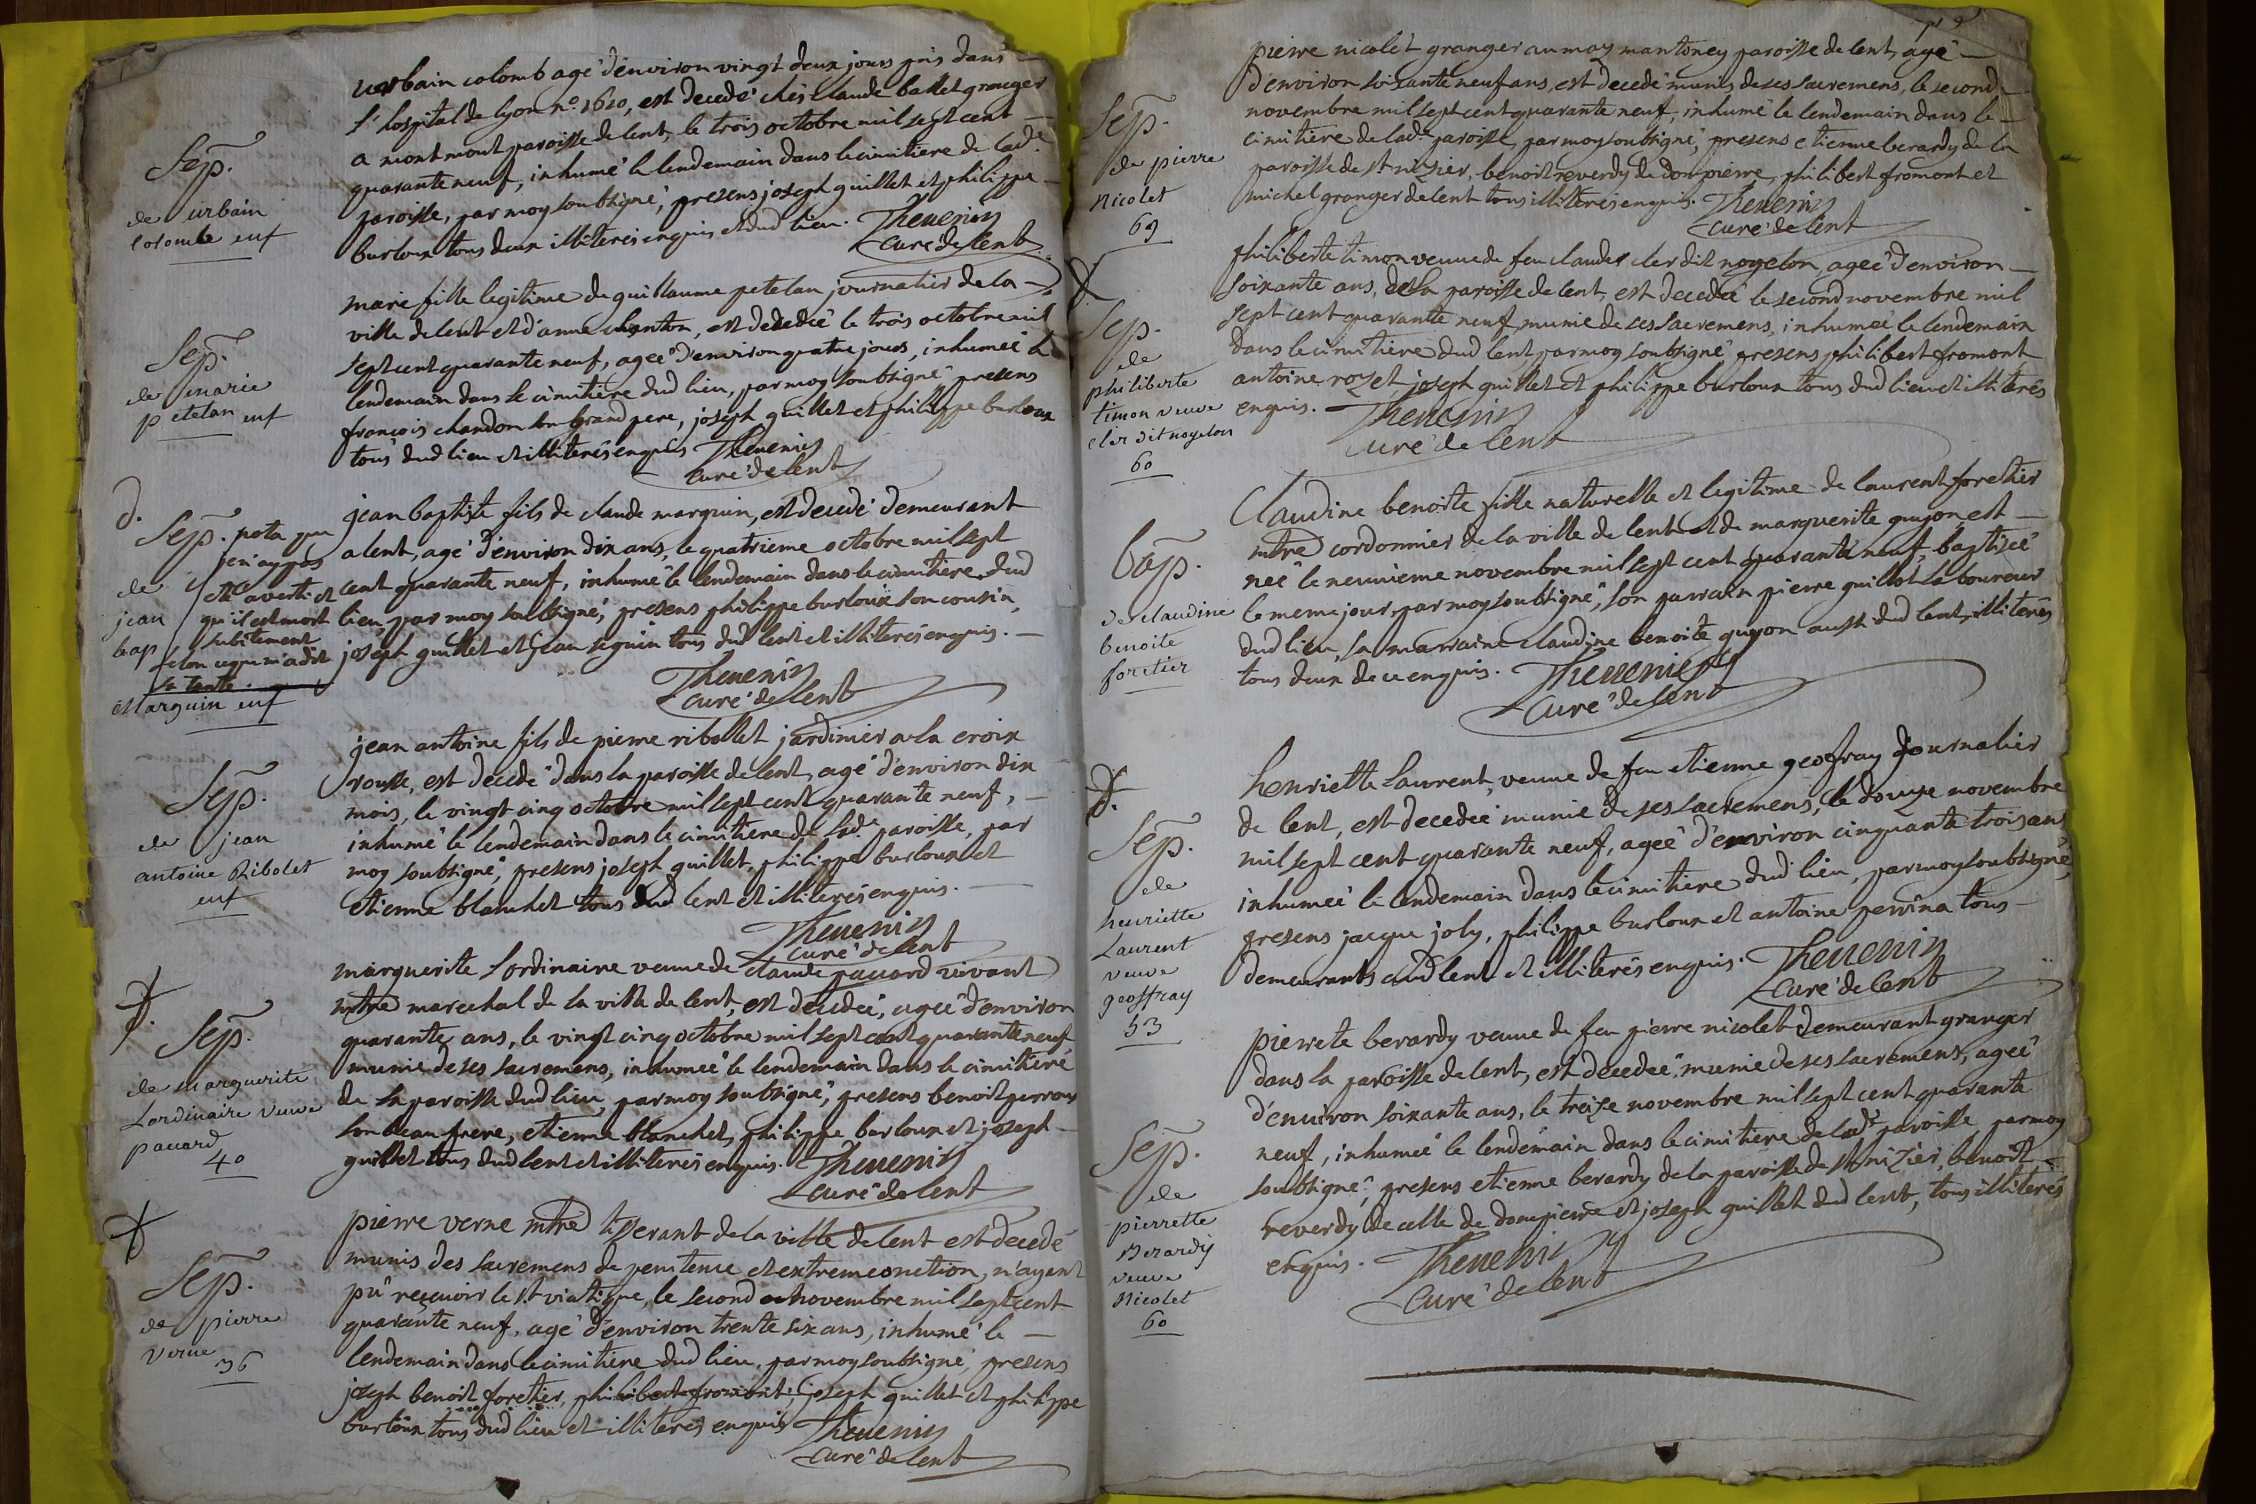 Sep.
de urbain
colombe enf
urbain colomb agé d'environ vingt deux jours pris dans
l'hospital de lyon n.o 1610, est decedé chés claude ballet granger
a montmont paroisse de lent, le trois octobre mil sept cent
quarante neuf, inhumé le lendemain dans le cimitiere de lad.e
paroisse, par moy soubsigné, presens joseph guillet et philippe
burloux tous deux illiterés enquis et dud lieu. Thevenin
curé de lent
Sep.
de marie
petelan enf
marie fille legitime de guillaume petelan journalier de la
ville de lent et d'anne chanton, est decedeé le trois octobre mil
sept cent quarante neuf, ageé d'environ quatre jours, inhumeé le
lendemain dans le cimitiere dud lieu, par moy soubsigné presens
françois chandon son grand pere, joseph guillet et philippe burloux
tous dud lieu et illiterés enquis Thevenin
curé de lent
d.
Sep. nota que
je n'ay pas
été averti et
qu'il est mort
subitement
selon ce qu'on m'a dit
sa tante.
de
jean
bap
Marguin enf
jean baptiste fils de claude marguin, est decedé demeurant
a lent, agé d'environ dix ans, le quatrieme octobre mil sept
cent quarante neuf, inhumé le lendemain dans le cimitiere dud
lieu, par moy soubsigné, presens philippe burloux son cousin,
joseph guillet et jean seguin tous dud lent et illiterés enquis.
Thevenin
curé de lent
Sep.
de jean
antoine Ribolet
enf
jean antoine fils de pierre ribollet jardinier a la croix
rousse, est decedé dans la paroisse de lent, agé d'environ dix
mois, le vingt cinq octobre mil sept cent quarante neuf,
inhumé le lendemain dans le cimitiere de lad.e paroisse, par
moy soubsigné, presens joseph guillet, philippe burloux et
etienne blanchet tous dud lent et illiterés enquis.
Thevenin
curé de lent
Sep.
de marguerite
Lordinaire veuve
pauard
40
marguerite lordinaire veuve de claude pauard vivant
mtre marechal de la ville de lent, est decedeé, ageé d'environ
quarante ans, le vingt cinq octobre mil sept cent quarante neuf
munie de ses sacremens, inhumeé le lendemain dans le cimitiere
de la paroisse dud lieu par moy soubsigné, presens benoit perroux
son beau frere, etienne blanchet, philippe burloux et joseph
guillet tous dud lent et illiterés enquis. Thevenin
curé de lent
Sep.
de pierre
verne
36
pierre verne mtre tisserant de la ville de lent est decedé
munis des sacremens de penitence et extreme onction, n'ayant
pû recevoir le st viatique, le second novembre mil sept cent
quarante neuf, agé d'environ trente six ans, inhumé le
lendemain dans le cimitiere dud lieu, par moy soubsigné, presens
joseph benoit foretier, philibert fromont, joseph guillet et philippe
burloux tous dud lieu et illiterés enquis Thevenin
curé de lent
Sep.
de pierre
Nicolet
69
pierre nicolet granger au may mantoney paroisse de lent, agé
d'environ soixante neuf ans, est decedé munis de ses sacremens, le second
novembre mil sept cent quarante neuf, inhumé le lendemain dans le
cimitiere de lad.e paroisse, par moy soubsigné, presens etienne berardy de la
paroisse de st nizier, benoit reverdy de dompierre, philibert fromont et
michel granger de lent tous illiterés enquis. Thevenin
curé de lent
Sep.
de
philiberte
timon veuve
cler dit noyelon
60
philiberte timon veuve de feu claude cler dit noyelon, ageé d'environ
soixante ans, de la paroisse de lent, est decedeé le second novembre mil
sept cent quarante neuf, munie de ses sacremens, inhumeé le lendemain
dans le cimitiere dud lent par moy soubsigné, presens philibert fromont
antoine rozet joseph guillet et philippe burloux tous dud lieu et illiterés
enquis. Thevenin
curé de lent
bap.
de claudine
benoite
foretier
Claudine benoite fille naturelle et legitime de laurent foretier
mtre cordonnier de la ville de lent et de marguerite guyon est
neé le neuvieme novembre mil sept cent quarante neuf, baptiseé
le meme jour, par moy soubsigné, son parrain pierre guillot laboureur
dud lieu, sa marraine claudine benoite guyon aussi dud lent, illiterés
tous deux de ce enquis. Thevenin
curé de lent
Sep.
de
henriette
Laurent
veuve
geoffray
53
henriette laurent, veuve de feu etienne geofray journalier
de lent, est decedeé munie de ses sacremens, le douze novembre
mil sept cent quarante neuf, ageé d'environ cinquante trois ans
inhumeé le lendemain dans le cimitiere dud lieu, par moy soubsigné,
presens jacque joly, philippe burloux et antoine perrina tous
demeurants aud lent et illiterés enquis. Thevenin
curé de lent
Sep.
de
pierrette
Berardy
veuve
Nicolet
60
pierrete berardy veuve de feu pierre nicolet demeurant granger
dans la paroisse de lent, est decedeé munie de ses sacremens, ageé
d'environ soixante ans, le treize novembre mil sept cent quarante
neuf, inhumeé le lendemain dans le cimitiere de lad.e paroisse, par moy
soubsigné, presens etienne berardy de la paroisse de st nizier, benoit
reverdy de celle de dompierre et joseph guillet dud lent, tous illiterés
enquis. Thevenin
curé de lent